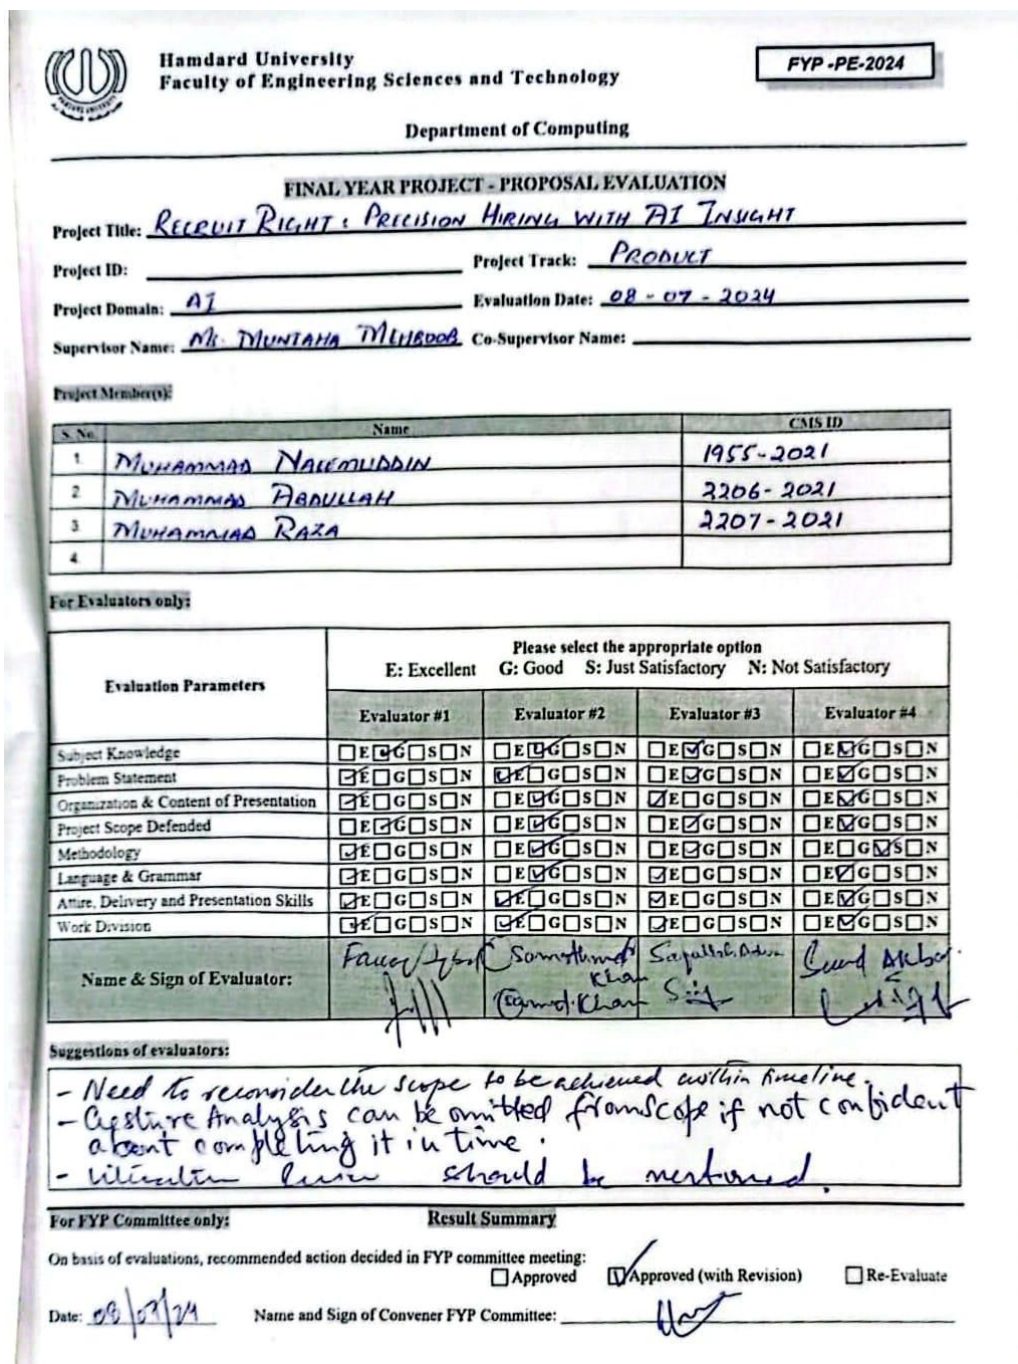 Hamdard University
Faculty of Engineering Sciences and Technology
FYP -PE-2024
Department of Computing
FINAL YEAR PROJECT - PROPOSAL EVALUATION
Project Title: RECRUIT RIGHT : PRECISION HIRING WITH AI INSIGHT
Project ID: Project Track: PRODUCT
Project Domain: AI Evaluation Date: 08 - 07 - 2024
Supervisor Name: MUNTAHA MEHBOOB Co-Supervisor Name:
Project Member(s):
S. No. Name CMS ID
1. MUHAMMAD NAEEMUDDIN 1955-2021
2. MUHAMMAD ABDULLAH 2206-2021
3. MUHAMMAD RAZA 2207-2021
4.
For Evaluators only:
Evaluation Parameters
Please select the appropriate option
E: Excellent G: Good S: Just Satisfactory N: Not Satisfactory
Evaluator #1 Evaluator #2 Evaluator #3 Evaluator #4
Subject Knowledge E G S N E G S N E G S N E G S N
Problem Statement E G S N E G S N E G S N E G S N
Organization & Content of Presentation E G S N E G S N E G S N E G S N
Project Scope Defended E G S N E G S N E G S N E G S N
Methodology E G S N E G S N E G S N E G S N
Language & Grammar E G S N E G S N E G S N E G S N
Attire, Delivery and Presentation Skills E G S N E G S N E G S N E G S N
Work Division E G S N E G S N E G S N E G S N
Name & Sign of Evaluator: Khan Akbar
Khan
Suggestions of evaluators:
- Need to reconsider the scope to be achieved within timeline.
- Gesture Analysis can be omitted from scope if not confident
about completing it in time.
- should be mentioned.
For FYP Committee only: Result Summary
On basis of evaluations, recommended action decided in FYP committee meeting:
Approved Approved (with Revision) Re-Evaluate
Date: 08/07/24 Name and Sign of Convener FYP Committee: